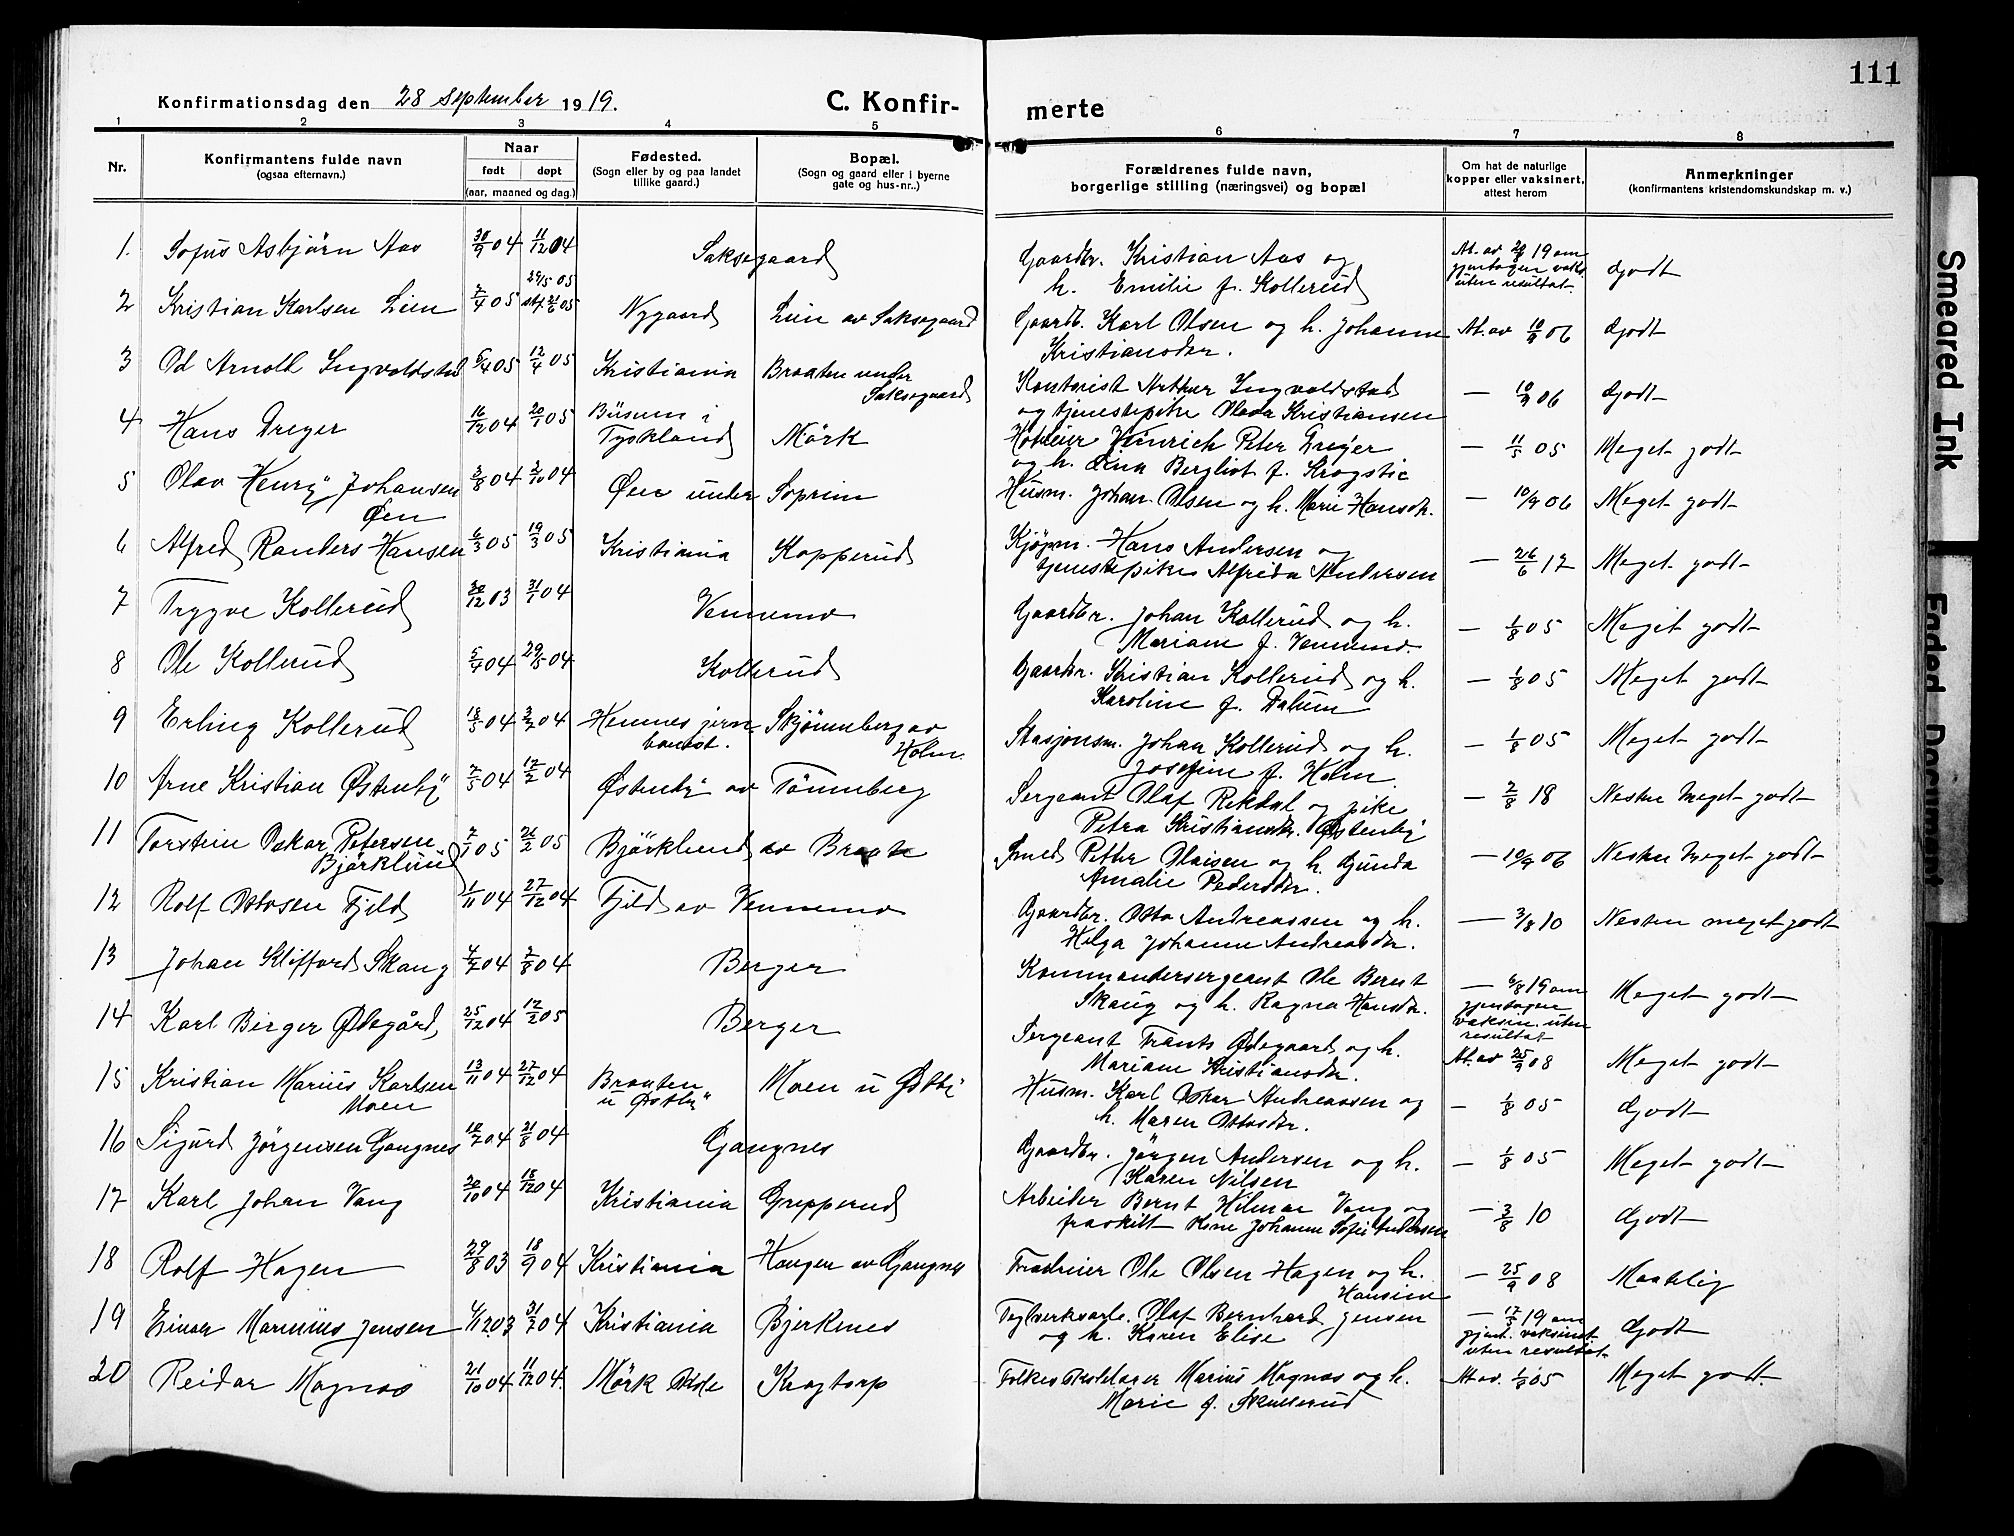 111
Konfirmationsdag den 28 September 1919.
C. Konfir-
merte
1 2 3 4 5 6 7 8
Nr.
Konfirmantens fulde navn
(ogsaa efternavn.)
Naar
født døpt
(aar, maaned og dag.)
Fødested.
(Sogn eller by og paa landet
tillike gaard.)
Bopæl.
(Sogn og gaard eller i byerne
gate og hus-nr..)
Forældrenes fulde navn,
borgerlige stilling (næringsvei) og bopæl
Om hat de naturlige
kopper eller vaksinert,
attest herom
Anmerkninger
(konfirmantens kristendomskundskap m. v.)
1. Sofus Asbjørn Aas 30/9 04 11/12 04 Saksegaard
Gaardbr. Kristian Aas og
h. Emilie f. Kollerud
At. av 19 om
gjentagen vaks.
uten resultat.
Godt
2 Kristian Karlsen Lien 2/4 05 29/5 05
stf. 21/6 05
Nygaard Lien av Saksegaard
Gaardb. Karl Olsen og h. Johanne
Kristiansdtr.
At. av 10/9 06 Godt
3 Od Arnold Ingvoldstad 5/4 05 12/4 05 Kristiania Braaten under
Saksegaard
Kontorist Arthur Ingvoldstad
og tjenestepike Olava Kristiansen
— 10/9 06 Godt
4 Hans Dreyer 16/12 04 20/1 05 Büsum i
Tyskland Mørk
Hoteleier Heinrich Peter Dreyer
og h. Lina Bergliot f. Krogstie
— 11/5 05 Meget godt
5 Olav Henry Johansen
Øen
3/8 04 2/10 04 Øen under Soprim
Husm. Johan Olsen og h. Marie Hansdtr.
— 10/9 06 Meget godt
6 Alfred Randers Hansen 6/3 05 19/3 05 Kristiania Kopperud
Kjøpm. Hans Andersen og
tjenestepike Alfrida Andersen
— 26/6 12 Meget godt
7 Trygve Kollerud 30/12 03 31/1 04 Vennemo
Gaardbr. Johan Kollerud og h.
Mariane f. Vennemo.
— 1/8 05 Meget godt
8 Ole Kollerud 5/4 04 29/5 04 Kollerud
Gaardbr. Kristian Kollerud og h.
Karoline f. Dalum
— 1/8 05 Meget godt
9 Erling Kollerud 18/5 04 3/7 04 Hemnes jern-
banest.
Skjønneberg av
Holm.
Stasjonsm. Johan Kollerud og h.
Josefine f. Holm.
— 1/8 05 Meget godt
10 Arne Kristian Østenby 7/5 04 12/2 04 Østenby av Tønneberg
Sergeant Olaf Rekdal og pike
Petra Kristiansdtr. Østenby
— 2/8 18 Nesten meget godt
11 Torstein Oskar Petersen
Bjørklund
2/1 05 26/2 05 Bjørklund av Braate
Smed Petter Olaisen og h. Gunda
Amalie Pedersdtr.
— 10/9 06 Nesten meget godt
12 Rolf Ottosen Fjeld 1/11 04 27/12 04 Fjeld av Vennemo
Gaardbr. Otto Andreassen og h.
Helga Johanne Andreasdtr.
— 3/8 10 Nesten meget godt
13 Johan Klifford Skaug 4/7 04 7/8 04 Berger
Kommandersergeant Ole Bernt
Skaug og h. Ragna Hansdtr.
— 6/8 19 om
gjentagen
vaksin. uten
resultat
Meget godt
14 Karl Birger Ødegård 25/12 04 12/2 05 Berger
Sergeant Frants Ødegaard og h.
Mariane Kristiansdtr.
At. av 25/9 08 Meget godt
15 Kristian Marius Karlsen
Moen
13/11 04 27/12 04 Braaten
u Østby
Moen u Østby
Husm. Karl Oskar Andreassen og
h. Maren Ottosdtr.
— 1/8 05 Godt
16 Sigurd Jørgensen Gangnes 10/7 04 21/8 04 Gangnes
Gaardbr. Jørgen Andersen og h.
Karen Nilsen
— 1/8 05 Meget godt
17 Karl Johan Vang 20/10 04 15/12 04 Kristiania Grepperud
Arbeider Bernt Hilmar Vang og
fraskilt Kone Johanne Sofie Andersen
— 3/8 10 Godt
18 Rolf Hagen 29/8 03 18/9 04 Kristiania Haugen av Gangnes
Ole Olsen Hagen og h.
Hansine
— 25/9 08 Maadelig
19 Einar Marinius Jensen 6/12 03 31/7 04 Kristiania Bjerkenes
Teglverksarb. Olaf Bernhard Jensen
og h. Karen Elise
— 17/5 19 om
gjent. vaksinat.
uten resultat.
Godt
20 Reidar Magnos 21/10 04 11/12 04. Mørk Krogtorp
Marius Magnos og h.
Marie f. Skullerud
At av. 1/8 05 Meget godt.
Smeared Ink
Faded Document